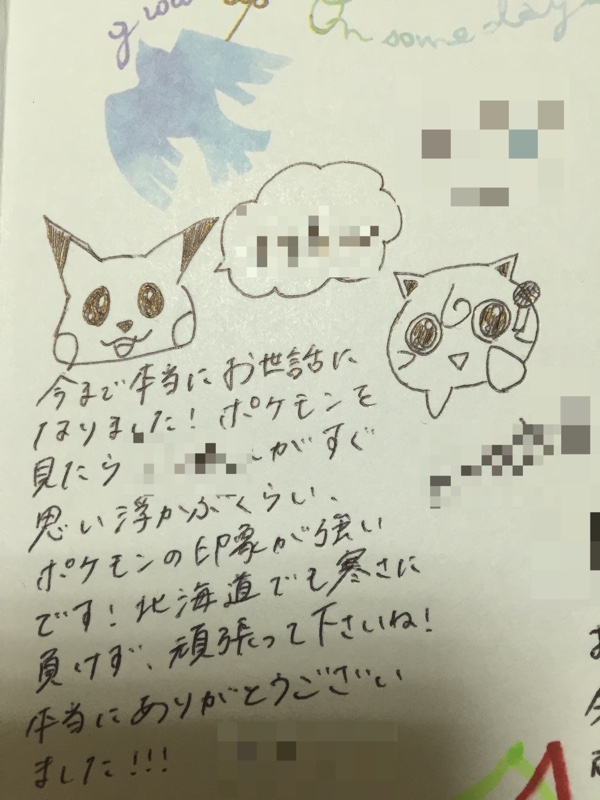 grow up
On some day
今まで本当にお世話に
なりました！ポケモンを
見たら
がすぐ
思い浮かぶくらい、
ポケモンの印象が強い
です！北海道でも寒さに
負けず、頑張って下さいね！
本当にありがとうござい
ました!!!
お
今